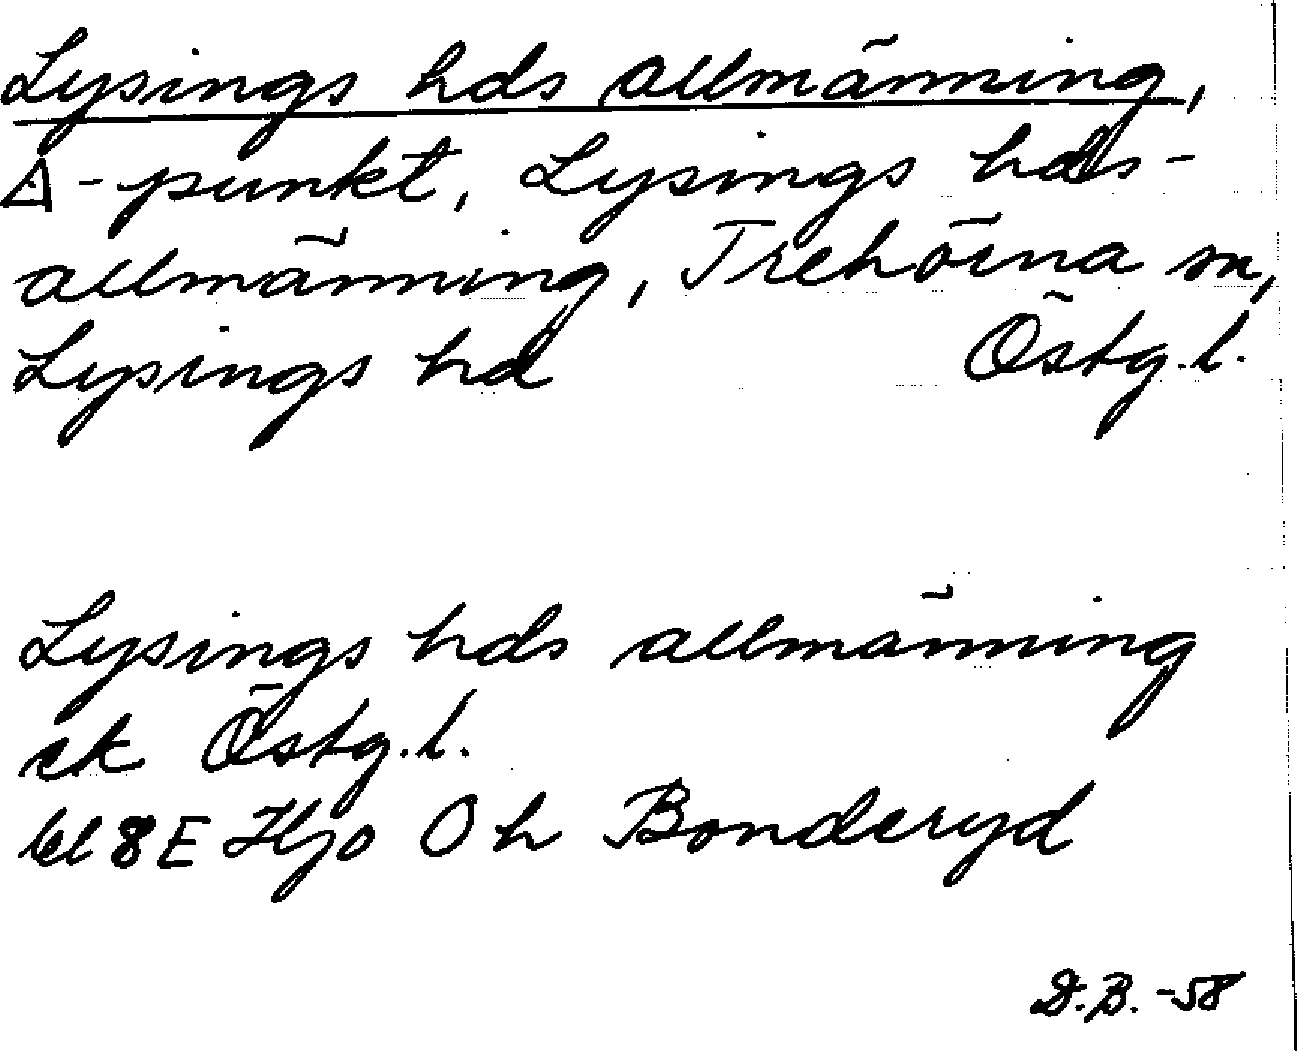 Lysings hds allmänning,
△-punkt, Lysings hds-
allmänning, Trehörna sn,
Lysings hd Östg.l.
Lysings hds allmänning
ek Östg.l.
bl 8E Hjo 0 h Bonderyd
D.B. -58